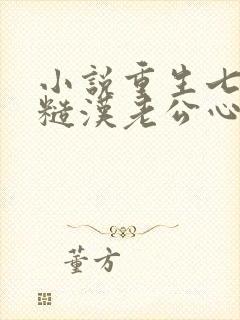 小说重生七
糙汉老公心
董方